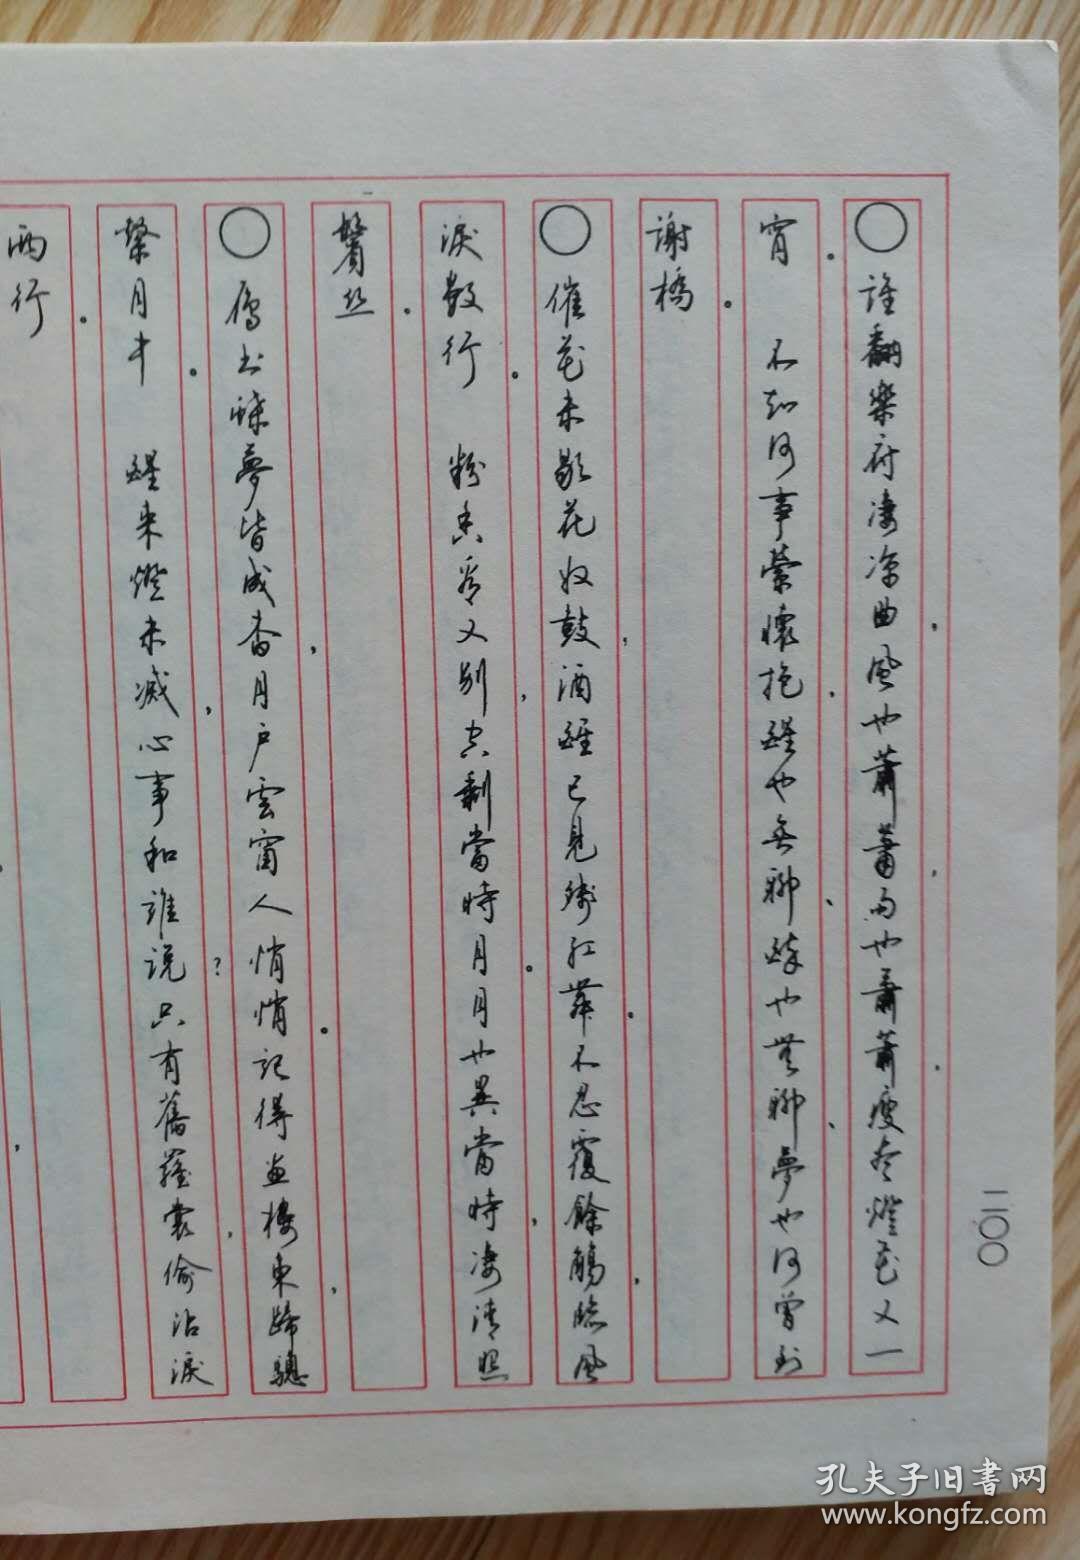 ○誰翻樂府凄涼曲，風也蕭蕭，雨也蕭蕭，瘦盡燈花又一
宵。　不知何事縈懷抱，醒也無聊，醉也無聊，夢也何曾到
謝橋。
○催花未歇花奴鼓，酒醒已見殘紅舞。不忍覆餘觴，臨風
淚數行。　粉香看又別，空剩當時月。月也異當時，凄清照
鬢絲。
○鴈書蝶夢皆成杳，月戶雲窗人悄悄。記得畫樓東，歸驄
繫月中。　醒來燈未滅，心事和誰説？只有舊羅裳，偷沾淚
兩行。
二〇〇
孔夫子旧書网
www.kongfz.com